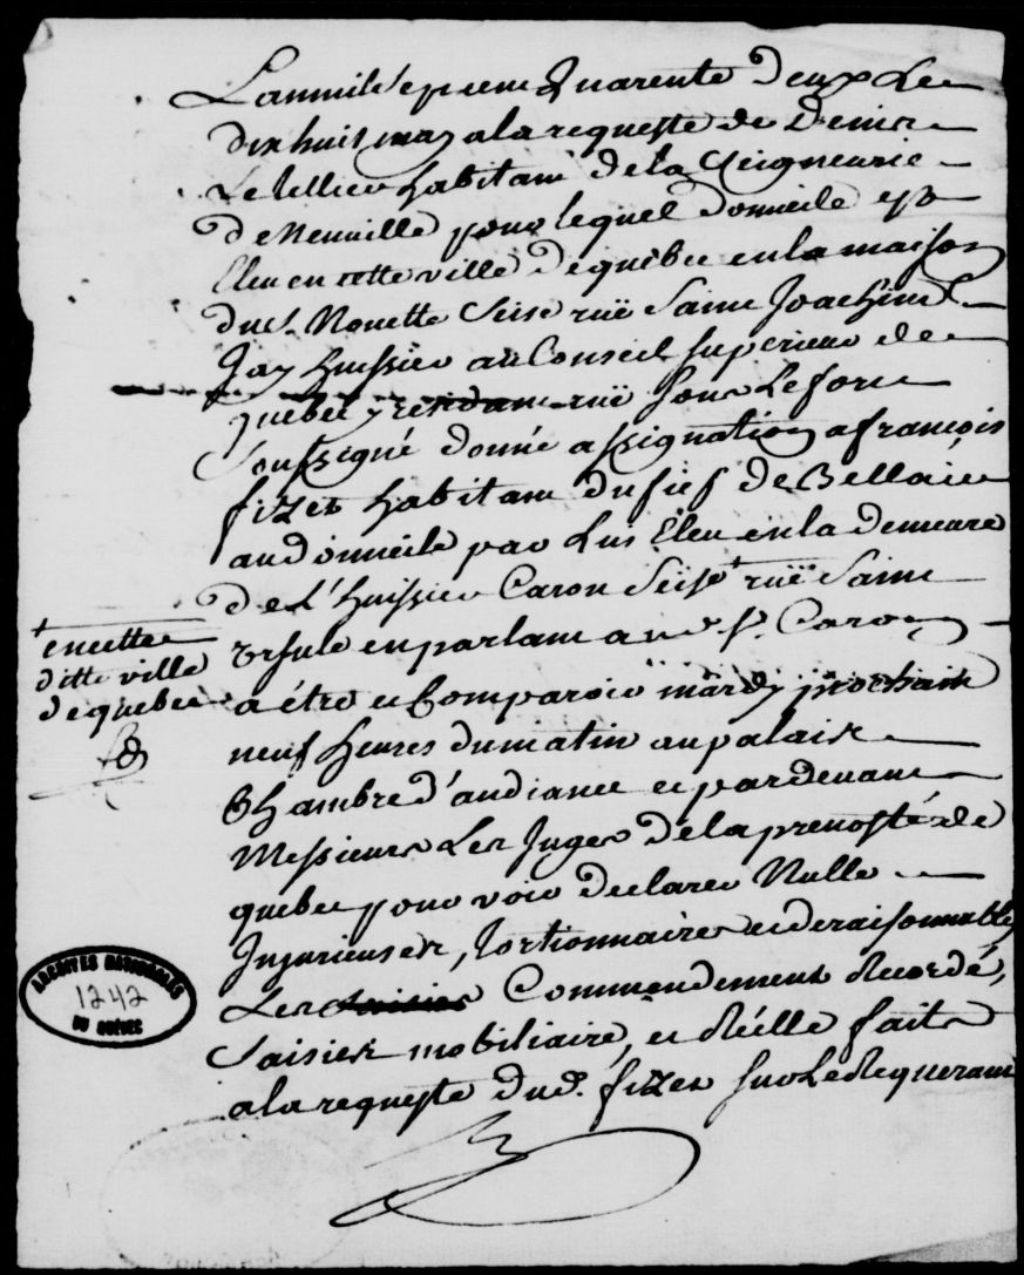 L'an mil sept cent Quarente Deux Le
dix huit may a la requeste de Denis
Letellier habitant de la Seigneurie
De Neuville pour lequel Domicile est
Eleu en cette ville de quebec en la maison
du Sr. Nouette Seise rüe Saint Joachim
Jay huissier au Conseil superieur de
quebec y residant rüe sous Le fort
Soussigné donné assignation a françois
fizet habitant du fief De Bellaire
au domicile par Luy Eleu en la demeure
De L'huissier Caron Seise + rüe Saint
Ursule en parlant a Caron
+ en cette
ditte ville
de quebec
a étre et Comparoir mardy prochain
neuf heures du matin au palais
Chambre d'audiance et pardevant
Messieurs Les Juges De la prevosté de
quebec pour voir declarer Nulle
Injurieuses, tortionnaires et deraisonnables
Les Commendement Recordé,
Saisies mobiliaire, et Réelle faits
a la requeste dud. fizet sur Le Requerant
ARCHIVES NATIONALES
1242
DU QUÉBEC